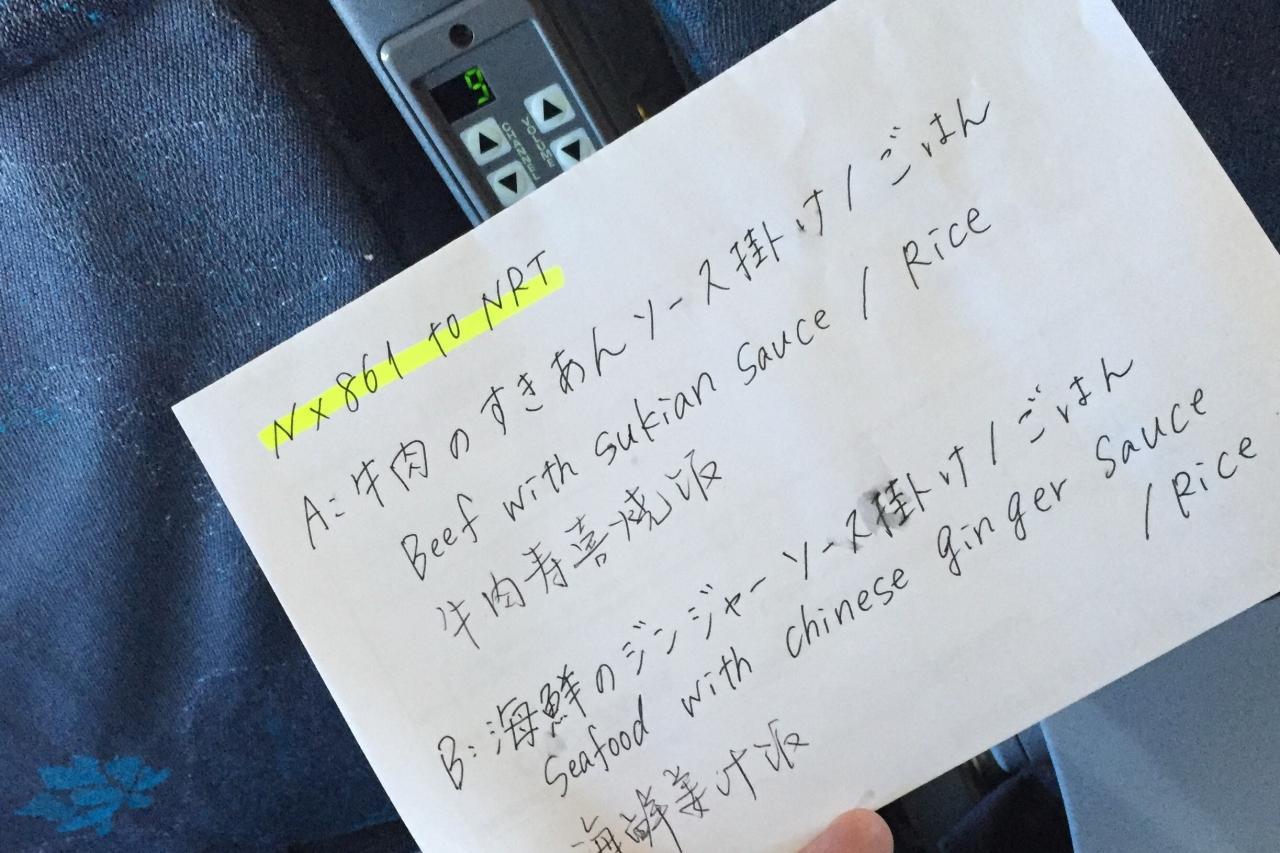 9
VOLUME
CHANNEL
NX861 to NRT
A: 牛肉のすきあんソース掛け/ごはん
Beef with sukian sauce / Rice
牛肉寿喜燒饭
B: 海鮮のジンジャーソース掛け/ごはん
Seafood with chinese ginger sauce
/Rice
海鮮姜汁饭